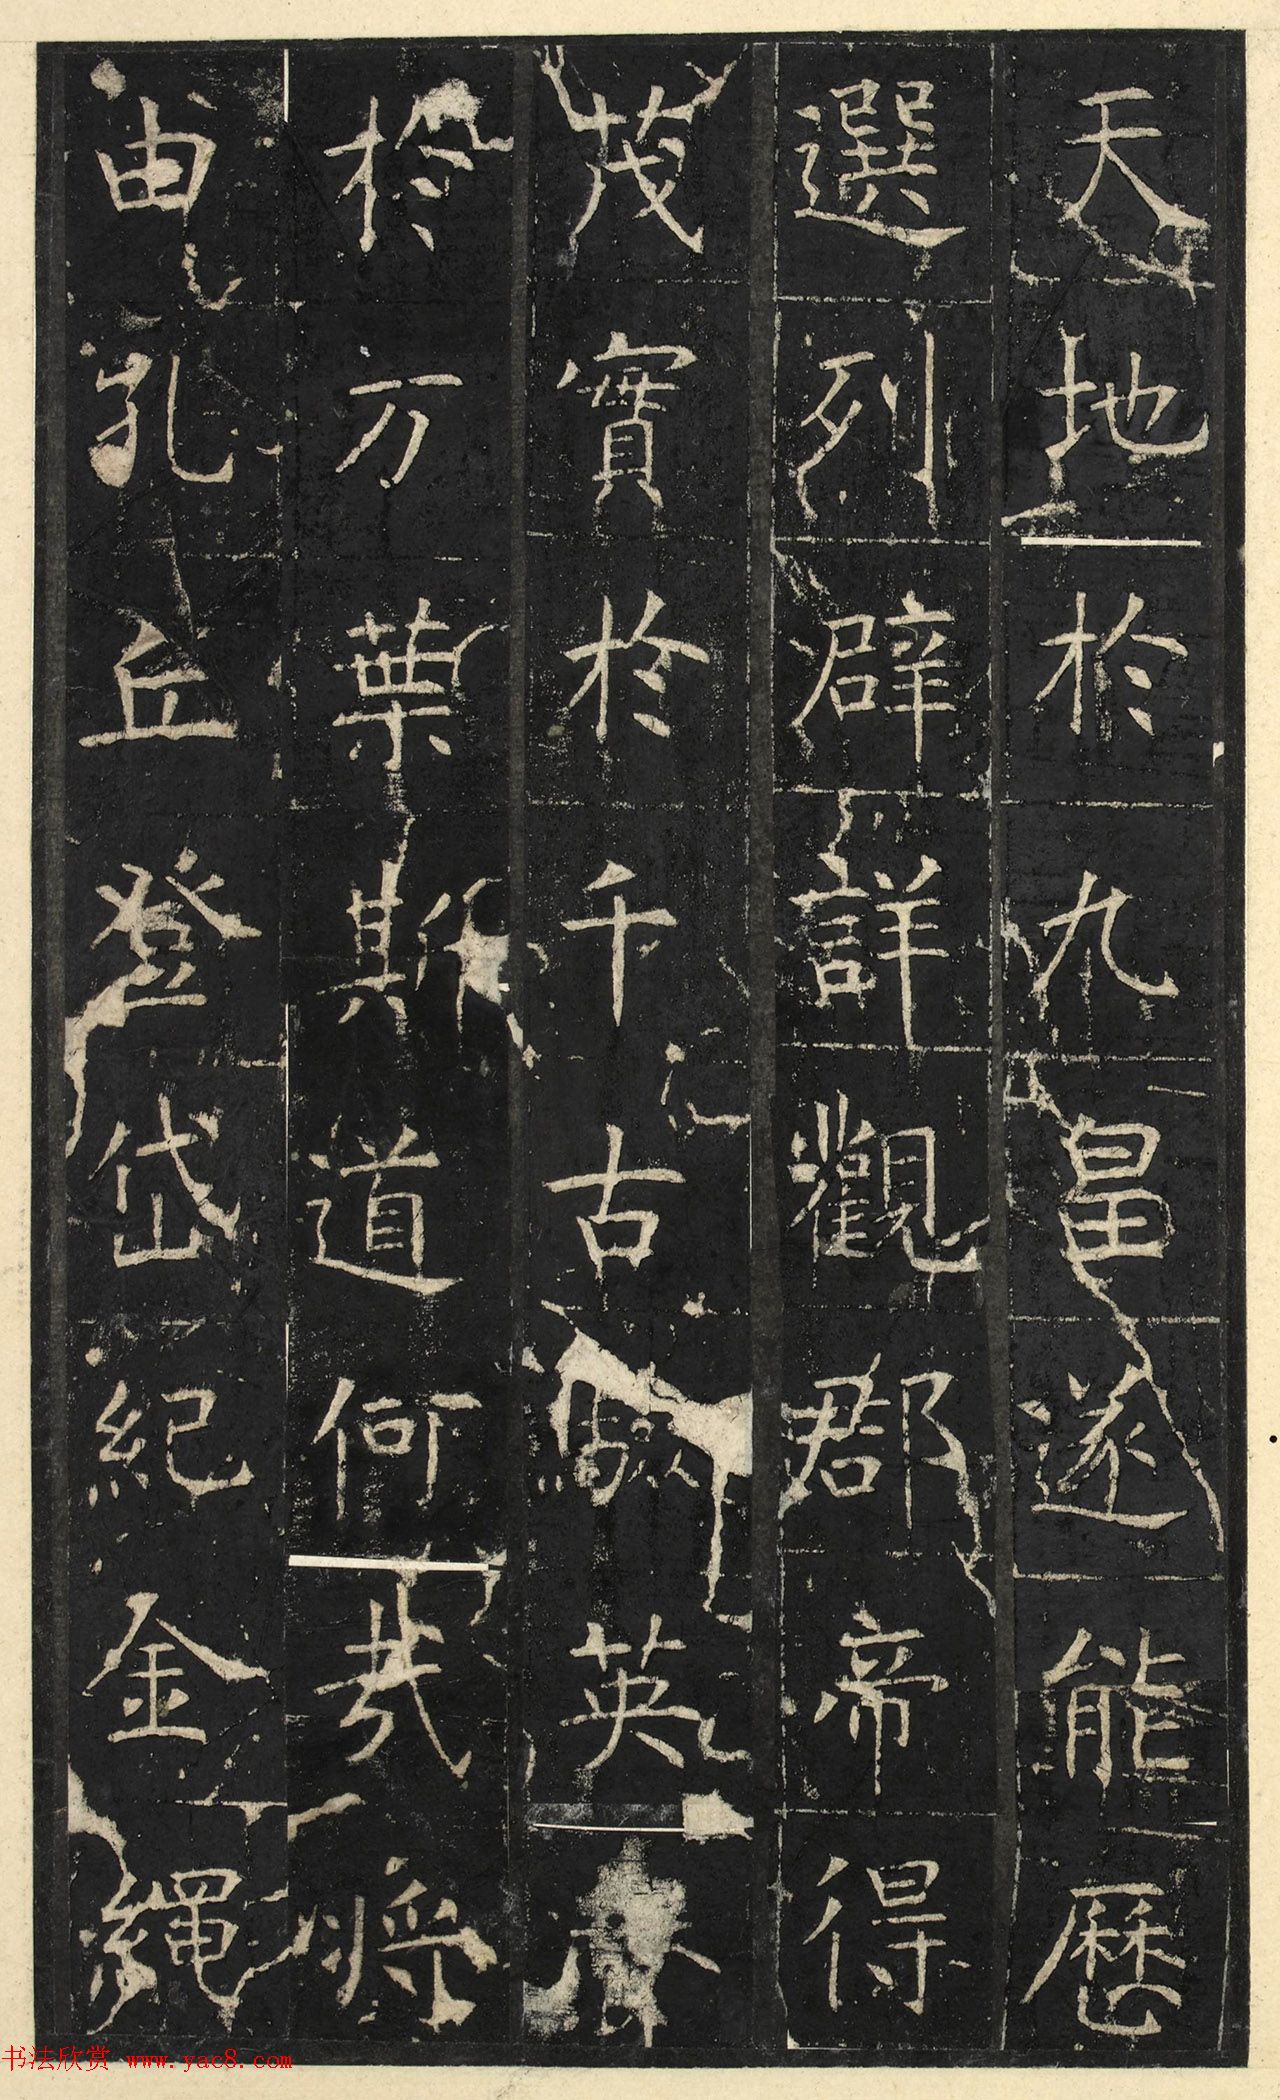 天地於九畕遂能歷
選列辟詳觀郡帝得
茂實於千古英
於万葉斯道何哉將
由孔丘登岱紀金繩
书法欣赏 www.yac8.com